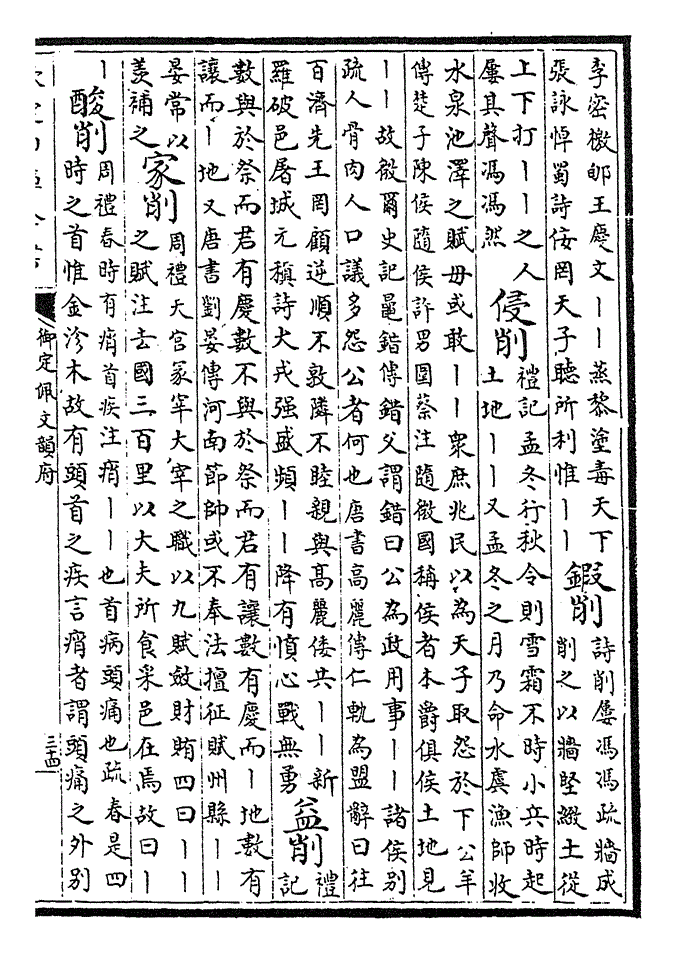 李密檄郇王慶文丨丨蒸黎塗毒天下
張詠悼蜀詩佞罔天子聽所利惟丨丨
鍜削
詩削屢馮馮疏牆成
削之以牆堅緻土從
上下打丨丨之人
屢其聲馮馮然
侵削
禮記孟冬行秋令則雪霜不時小兵時起
土地丨丨又孟冬之月乃命水虞漁師收
水泉池澤之賦毋或敢丨丨衆庶兆民以為天子取怨於下公羊
傳楚子陳侯隨侯許男圍蔡注隨微國稱侯者本爵俱侯土地見
丨丨故微爾史記鼂錯傳錯父謂錯曰公為政用事丨丨諸侯別
疏人骨肉人口議多怨公者何也唐書高麗傳仁軌為盟辭曰往
百濟先王罔顧逆順不敦隣不睦親與高麗倭共丨丨新
羅破邑屠城元稹詩犬戎强盛頻丨丨降有憤心戰無勇
益削
禮
記
數與於祭而君有慶數不與於祭而君有讓數有慶而丨地數有
讓而丨地又唐書劉晏傳河南節帥或不奉法擅征賦州縣丨丨
晏常以
羨補之
家削
周禮天官冢宰大宰之職以九賦斂財賄四曰丨丨
之賦注去國三百里以大夫所食采邑在焉故曰丨
丨
酸削
周禮春時有痟首疾注痟丨丨也首病頭痛也疏春是四
時之首惟金沴木故有頭首之疾言痟者謂頭痛之外別
御定佩文韻府
三十四